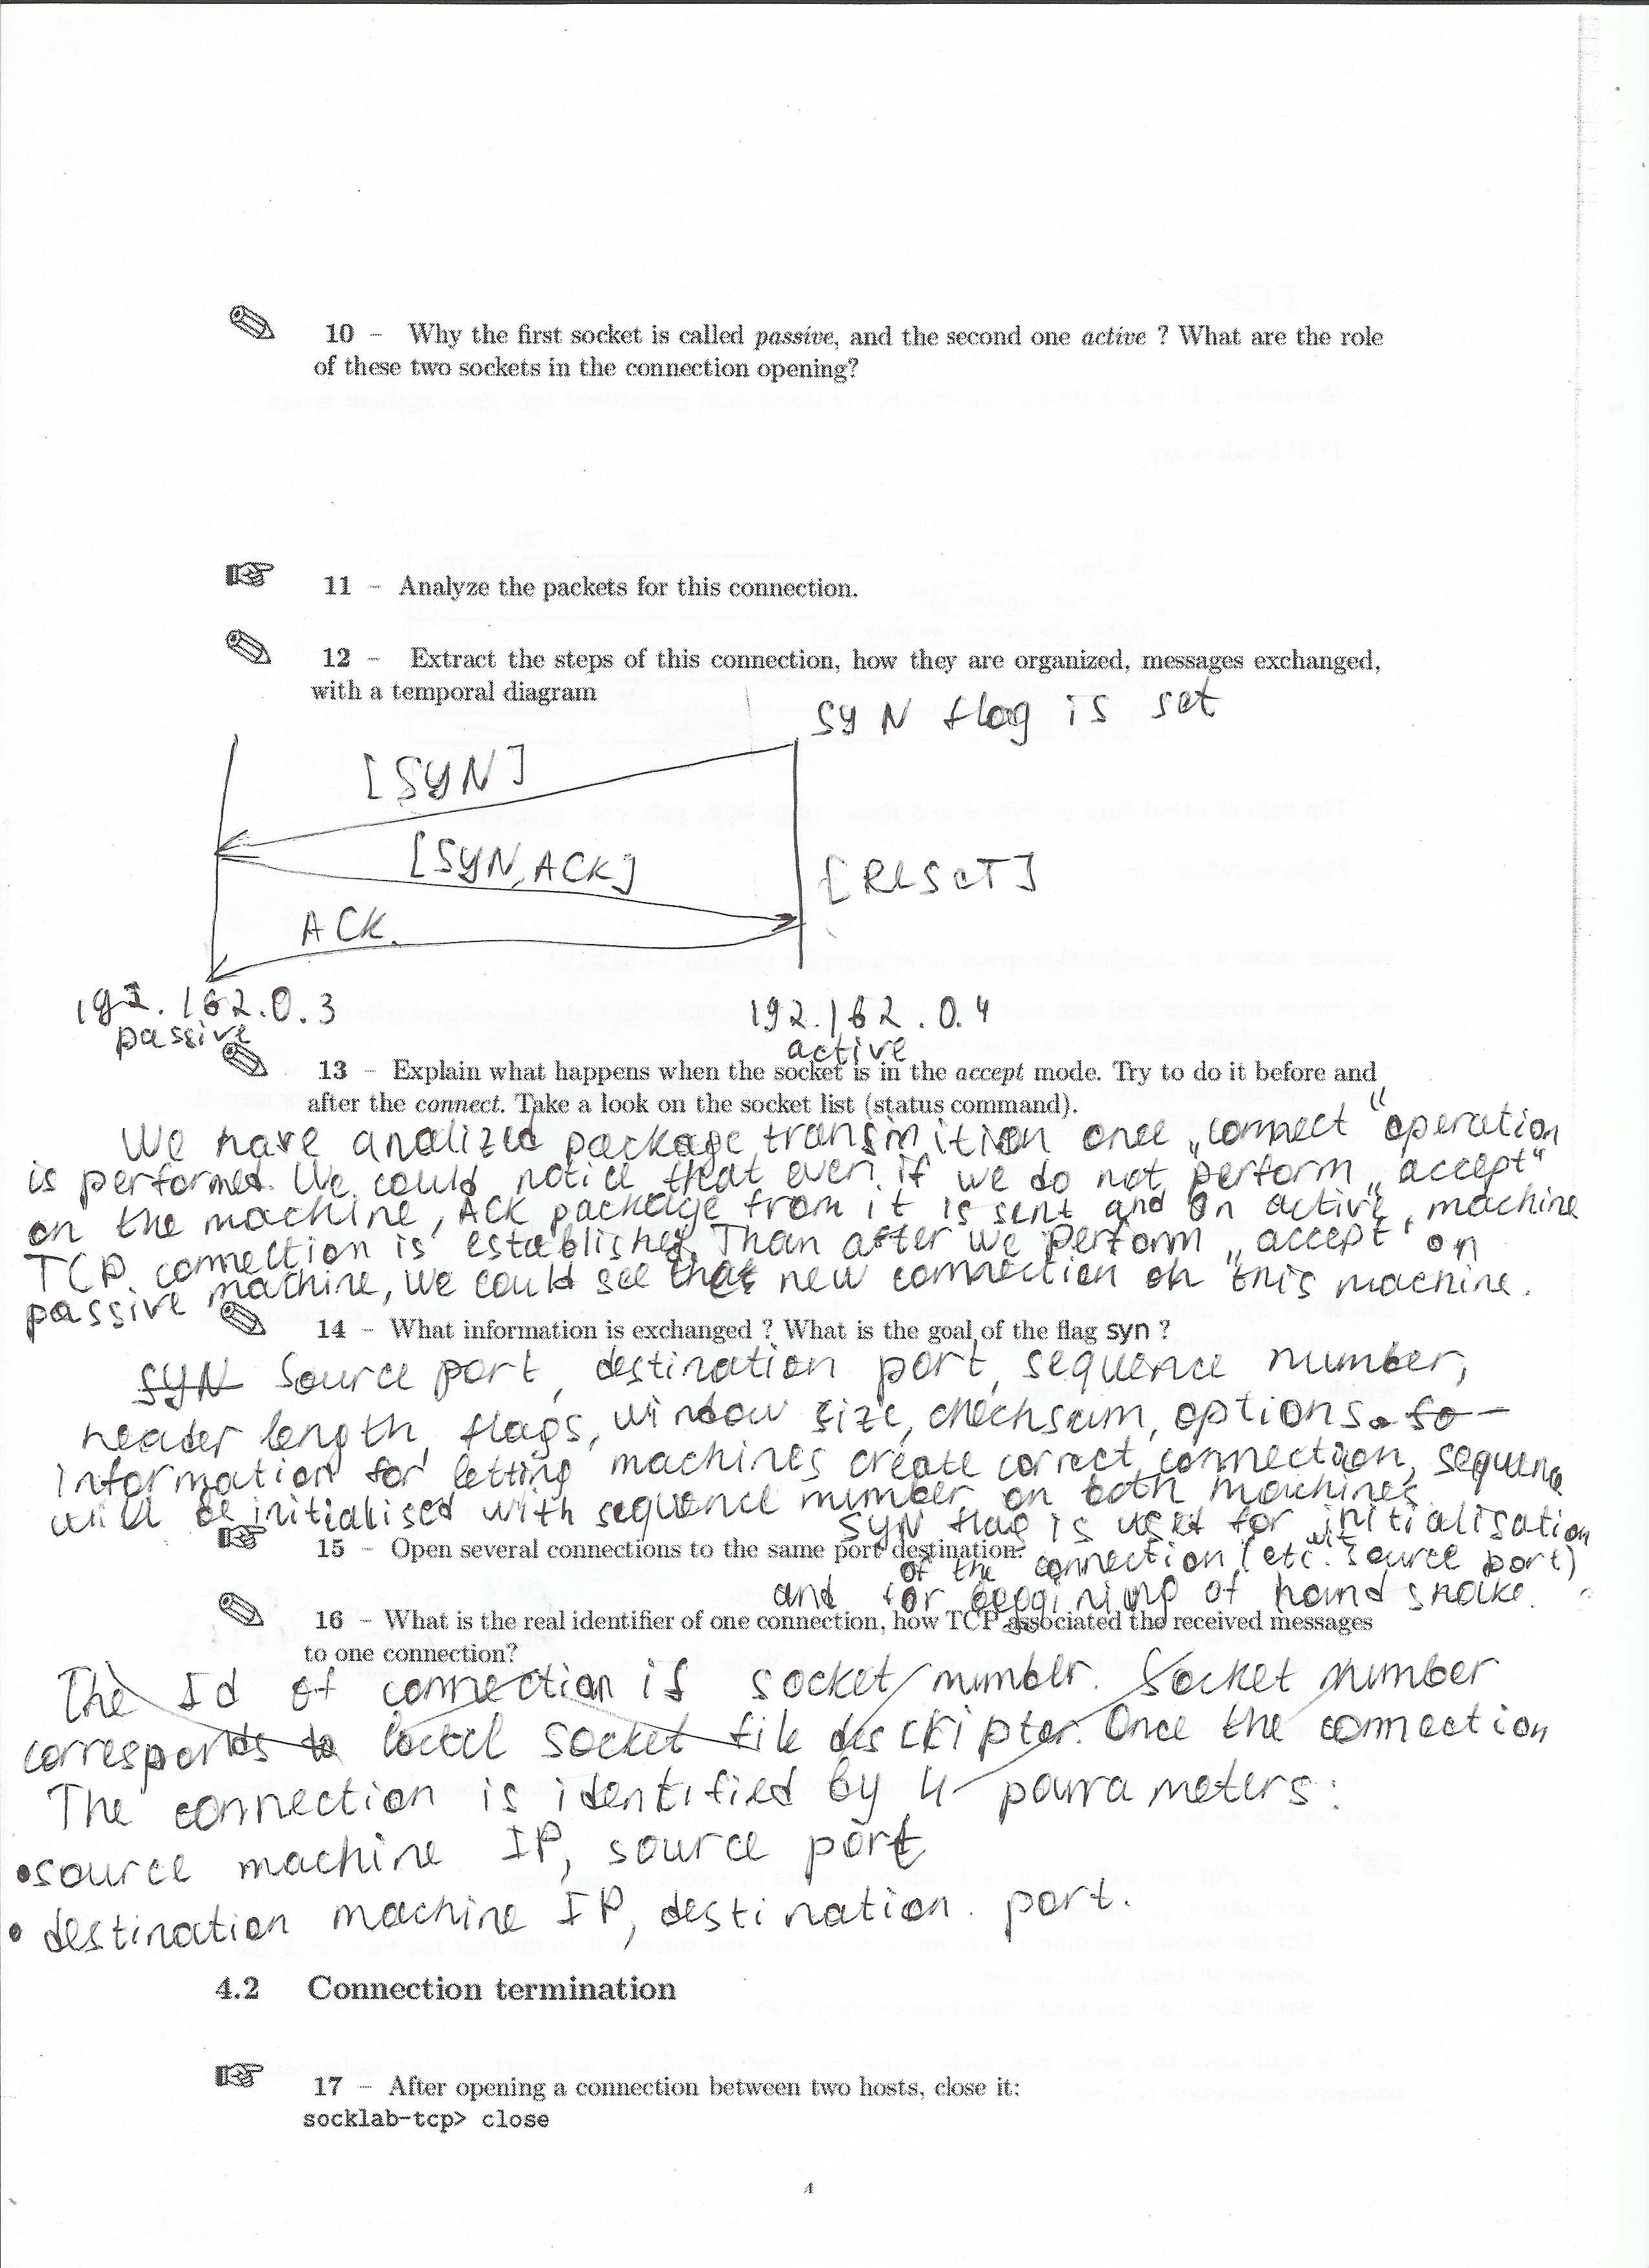 10 – Why the first socket is called passive, and the second one active ? What are the role
of these two sockets in the connection opening?
11 – Analyze the packets for this connection.
12 – Extract the steps of this connection, how they are organized, messages exchanged,
with a temporal diagram
SYN flag is set
[SYN]
[SYN, ACK]
[RESET]
ACK
192.162.0.3
passive
192.162.0.4
active
13 – Explain what happens when the socket is in the accept mode. Try to do it before and
after the connect. Take a look on the socket list (status command).
We have analized package transmition once „connect" operation
is performed. We could notice that even if we do not perform „accept"
on the machine, ACK package from it is sent and on active machine
TCP connection is established. Than after we perform „accept" on
passive machine, we could see that new connection on this machine.
14 – What information is exchanged ? What is the goal of the flag syn ?
SYN Source port, destination port, sequence number,
header length, flags, window size, checksum, options. so
information for letting machines create correct connection, sequence
will be initialised with sequence number on both machines.
SYN flag is used for initialisation
15 – Open several connections to the same port destination.
of the connection (etc. wit source port)
and for beggining of hand shake.
16 – What is the real identifier of one connection, how TCP associated the received messages
to one connection?
The Id of connection is socket number. Socket number
corresponds to local socket file descriptor. Once the connection
The connection is identified by 4 parrameters:
• source machine IP, source port
• destination machine IP, destination port.
4.2 Connection termination
17 – After opening a connection between two hosts, close it:
socklab-tcp> close
4